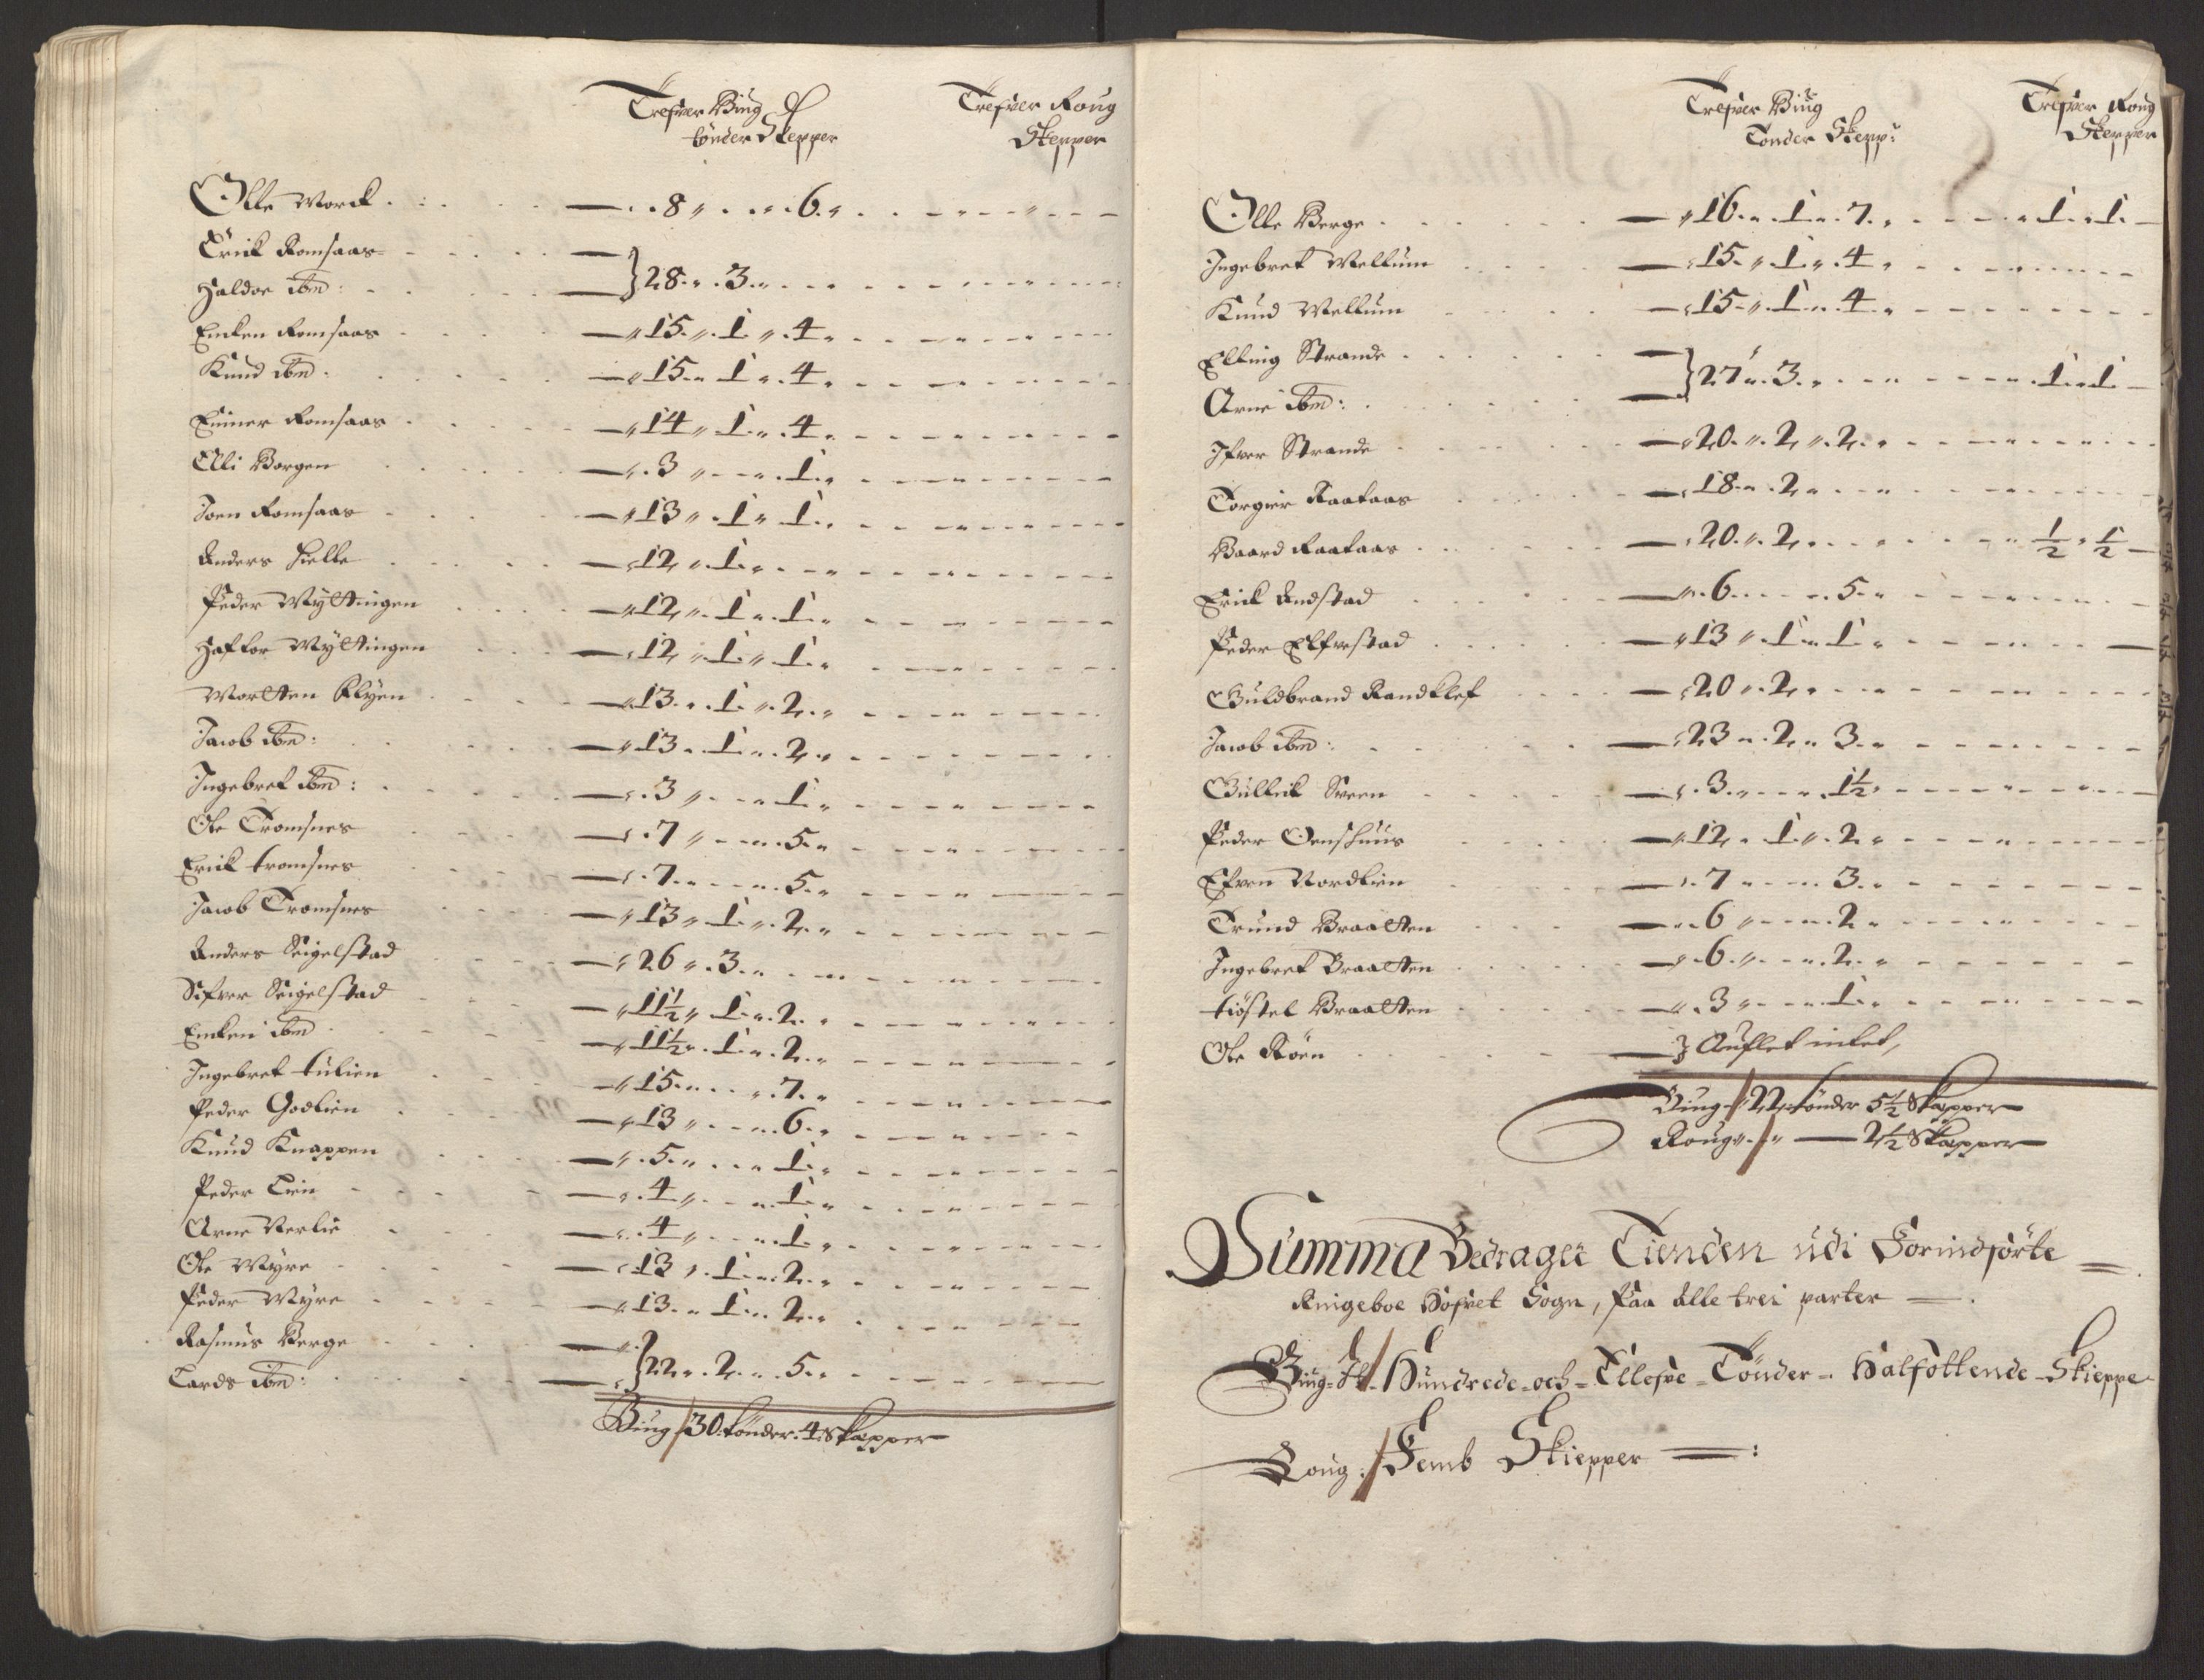 Trefver Biug
tønder Skepper
Trefver Roug
Skepper
Olle Worck . 8 . 6
Erick Romsaas
Haldor ibm: } 28 . 3
Encken Romsaas 15 . 1 . 4
Knud ibm. 15 . 1 . 4
Einer Romsaas 14 . 1 . 4
Alli Borgen 3 . 1
Joen Romsaas 13 . 1 . 1
Anders Hielle 12 . 1
Peder Myttingen 12 . 1 . 1
Haftor Myttingen 12 . 1 . 1
Mortten Klyen 13 . 1 . 2
Jacob ibm: 13 . 1 . 2
Ingebret ibm: 3 . 1
Ole Tromsnes 7 . 5
Erick tromsnes 7 . 5
Jacob Tromsnes 13 . 1 . 2
Anders Seigelstad 26 . 3
Sifver Seigelstad 11½ . 1 . 2
Encken ibm 11½ . 1 . 2
Ingebret tulien 15 . 7
Peder Godlien 13 . 6
Knud Knappen 5 . 1
Peder Lien 4 . 1
Arne Nerlie 4 . 1
Ole Myre 13 . 1 . 2
Peder Myre 13 . 1 . 2
Rasmus Berge
Lards ibm: } 22 . 2 . 5
Biug / 30 tønder . 4 Skæpper
Trefver Biug
Tønder Skepp:
Trefver Roug
Skepper
Olle Berge 16 . 1 . 7 . 1 . 1
Ingebret Mellum 15 . 1 . 4
Knud Mellum 15 . 1 . 4
Elling Strande
Arne ibm: } 27 . 3 . 1 . 1
Ifver Strande 20 . 2 . 2
Torgier Kaataas 18 . 2
Baard Kaataas 20 . 2 . ½ . ½
Erick Andstad 6 . 5
Peder Elfvestad 13 . 1 . 1
Guldbrand Randklef 20 . 2
Jacob ibm: 23 . 2 . 3
Gullick Sveen 3 . 1½
Peder Oenshuus 12 . 1 . 2
Efven Nordlien 7 . 3
Trund Braatten 6 . 2
Ingebret Braatten 6 . 2
tiøstel Braatten 3 . 1
Ole Roen } Auflet intet,
Biug / 22 tønder 5½ Skæpper
Roug / — 2½ Skæpper
Summa Bedrager Tienden udi Forindførte
Ringeboe Hofvet Sogn, Paa alle trei parter
Biug Et Hundrede och Ellefve Tønder Halfottende Skieppe
Roug / Femb Skiepper